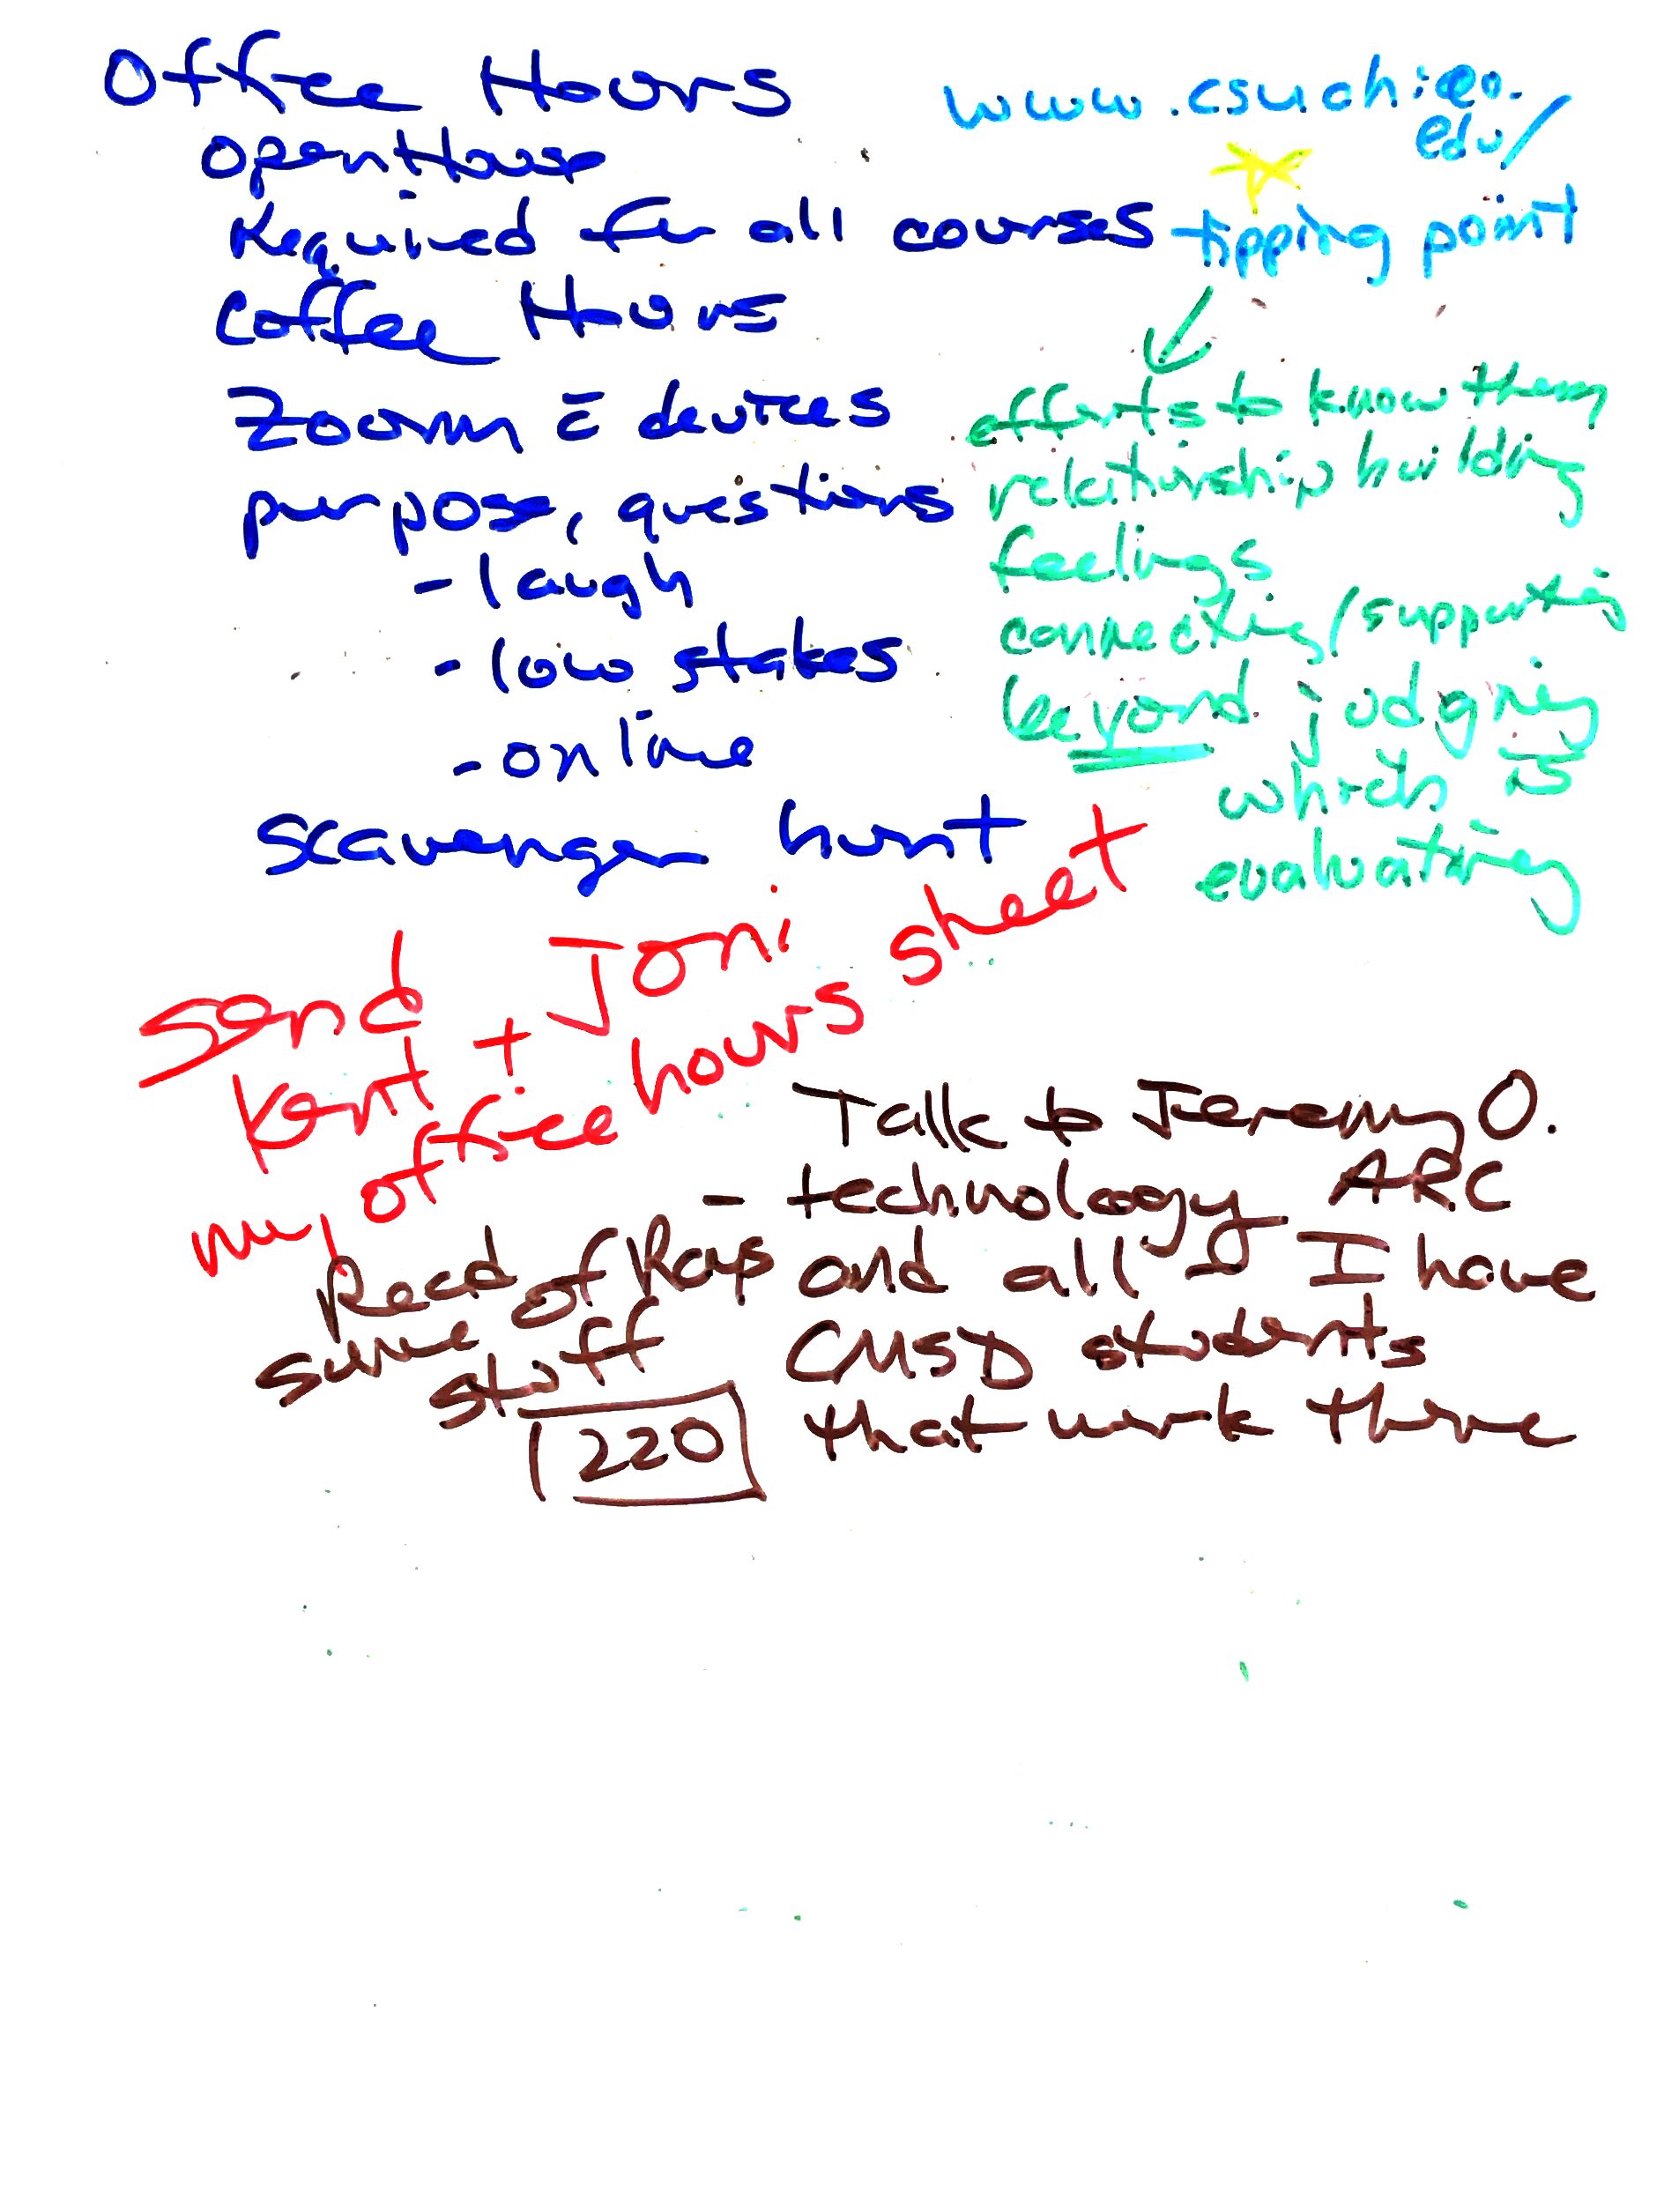 Office Hours
Open House
Required for all courses
Coffee Hours
Zoom c̄ devices
purpose, questions
- laugh
- low stakes
- online
scavenger hunt
www.csuchico.
edu/
tipping point
efforts to know them
relationship building
feelings
connecting/supporting
beyond judging
which is
evaluating
Send
Kent + Joni
my office hours sheet
Talk to Jeremy O.
- technology ARC
and all I have
CMSD students
that work there
Read of Ray's
some stuff
220